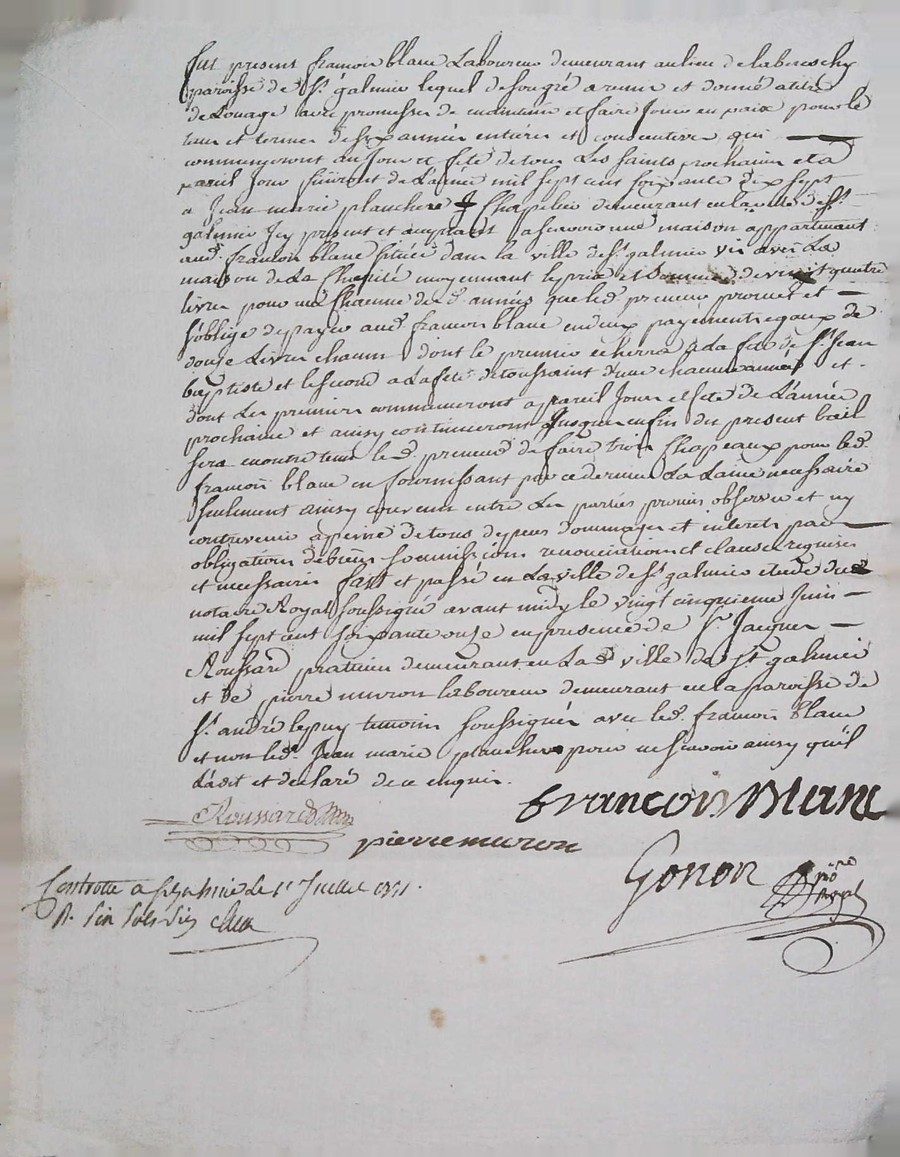 fut present francois blanc Laboureur demeurant au lieu de
paroisse de st. galmier lequel de son gré a remis et donné a titre
de Louage avec promesse de maintenir et faire jouir en paix pour le
tems et terme de six années entieres et consecutives qui
commenceront au jour et fete de tous Les saints prochain et a
pareil jour suivront de L'année mil sept cent soixante dix sept
a Jean marie planchere chapelier demeurant en la ville de st.
galmier icy present et acceptant a scavoir une maison appartenant
aud. francois blanc située dans la ville de st. galmier vis avis La
maison de La charité moyennant le prix et somme de vingt quatre
livres pour une chacune desd. années que led. preneur promet et
s'oblige de payer aud. francois blanc en deux payements egaux de
douze Livres chacun dont le premier echerra a La fete de st. Jean
baptiste et le second a La fete de toussaint d'une chacune année et
dont Les premiers commenceront a pareil jour et fete de L'année
prochaine et ainsy continueront jusques en fin du present bail
sera en outre tenu led. preneur de faire trois chapeaux pour led.
francois blanc en fournissant par ce dernier La Laine necessaire
seulement ainsy convenu entre Les parties promis observer et ny
contrevenir a peine de tous depens dommages et interets par
obligations de biens soumissions renonciations et clauses requises
et necessaires fait et passé en La ville de st. galmier etude du
notaire Royal soussigné avant midy le vingt cinquieme juin
mil sept cent soixante onze en presence de sr. Jacques
Roussard praticien demeurant en Lad. ville de st. galmier
et de pierre muron laboureur demeurant en la paroisse de
st. andré le puy temoins soussignés avec led. francois blanc
et non led. Jean marie planchere pour ne scavoir ainsy qu'il
L'a dit et declaré de ce enquis.
Roussard
francois blanc
pierre muron
Gonon nore Royal
Controllé a st galmier le 1er Juillet 1771.
R.